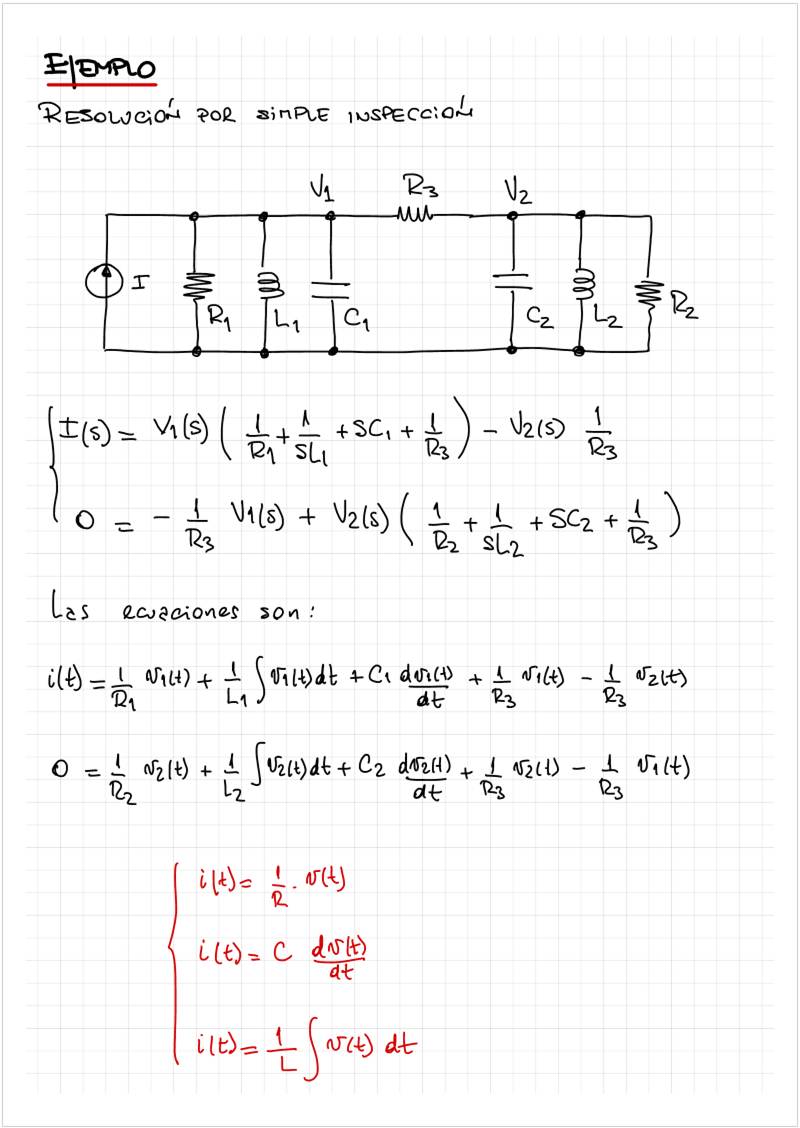 EJEMPLO
RESOLUCIÓN POR SIMPLE INSPECCIÓN
V1 R3 V2
I R1 L1 C1 C2 L2 R2
I(s) = V1(s) ( 1/R1 + 1/sL1 + SC1 + 1/R3 ) - V2(s) 1/R3
0 = - 1/R3 V1(s) + V2(s) ( 1/R2 + 1/sL2 + SC2 + 1/R3 )
Las ecuaciones son:
i(t) = 1/R1 v1(t) + 1/L1 ∫ v1(t) dt + C1 dv1(t)/dt + 1/R3 v1(t) - 1/R3 v2(t)
0 = 1/R2 v2(t) + 1/L2 ∫ v2(t) dt + C2 dv2(t)/dt + 1/R3 v2(t) - 1/R3 v1(t)
i(t) = 1/R . v(t)
i(t) = C dv(t)/dt
i(t) = 1/L ∫ v(t) dt